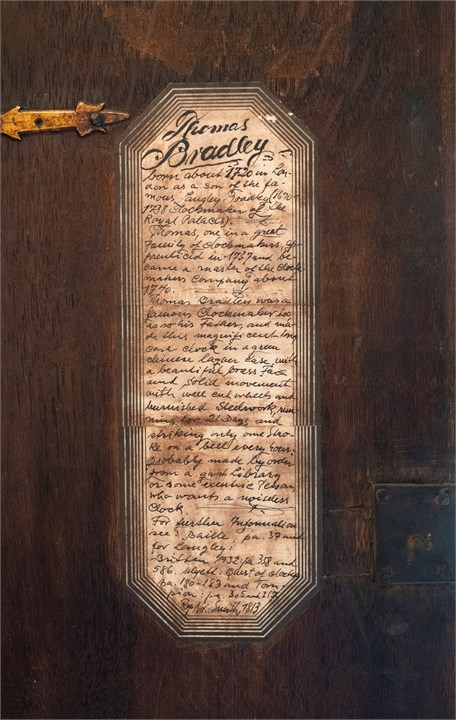 Thomas
Bradley
born about 1720 in Lon-
don as a son of the fa-
mous Langley Bradley (1670-
1738 Clockmaker of The
Royal Palaces).
Thomas, one in a great
Family of Clockmakers, ap-
prenticed in 1737 and be-
came a master of the Clock
makers Company about
1746.
Thomas Bradley was a
famous Clockmaker too
as so his Father, and ma-
de this magnificent long
case clock in a green
chinese laquer case with
a beautiful brass Face
and solid movement
with well cut wheels and
burnished Steelwork, run-
ning for 21 Days and
striking only one Stro-
ke on a bell every hour,
probably made by order
from a great Library
or some excentric Person
who wants a noiseless
Clock
For further Information
see: Baillie, pa. 37 and
for Langley:
Britten 1932: pa. 358 and
586. Quest of clocks
pa. 180-183 and Tom
pion: pa.